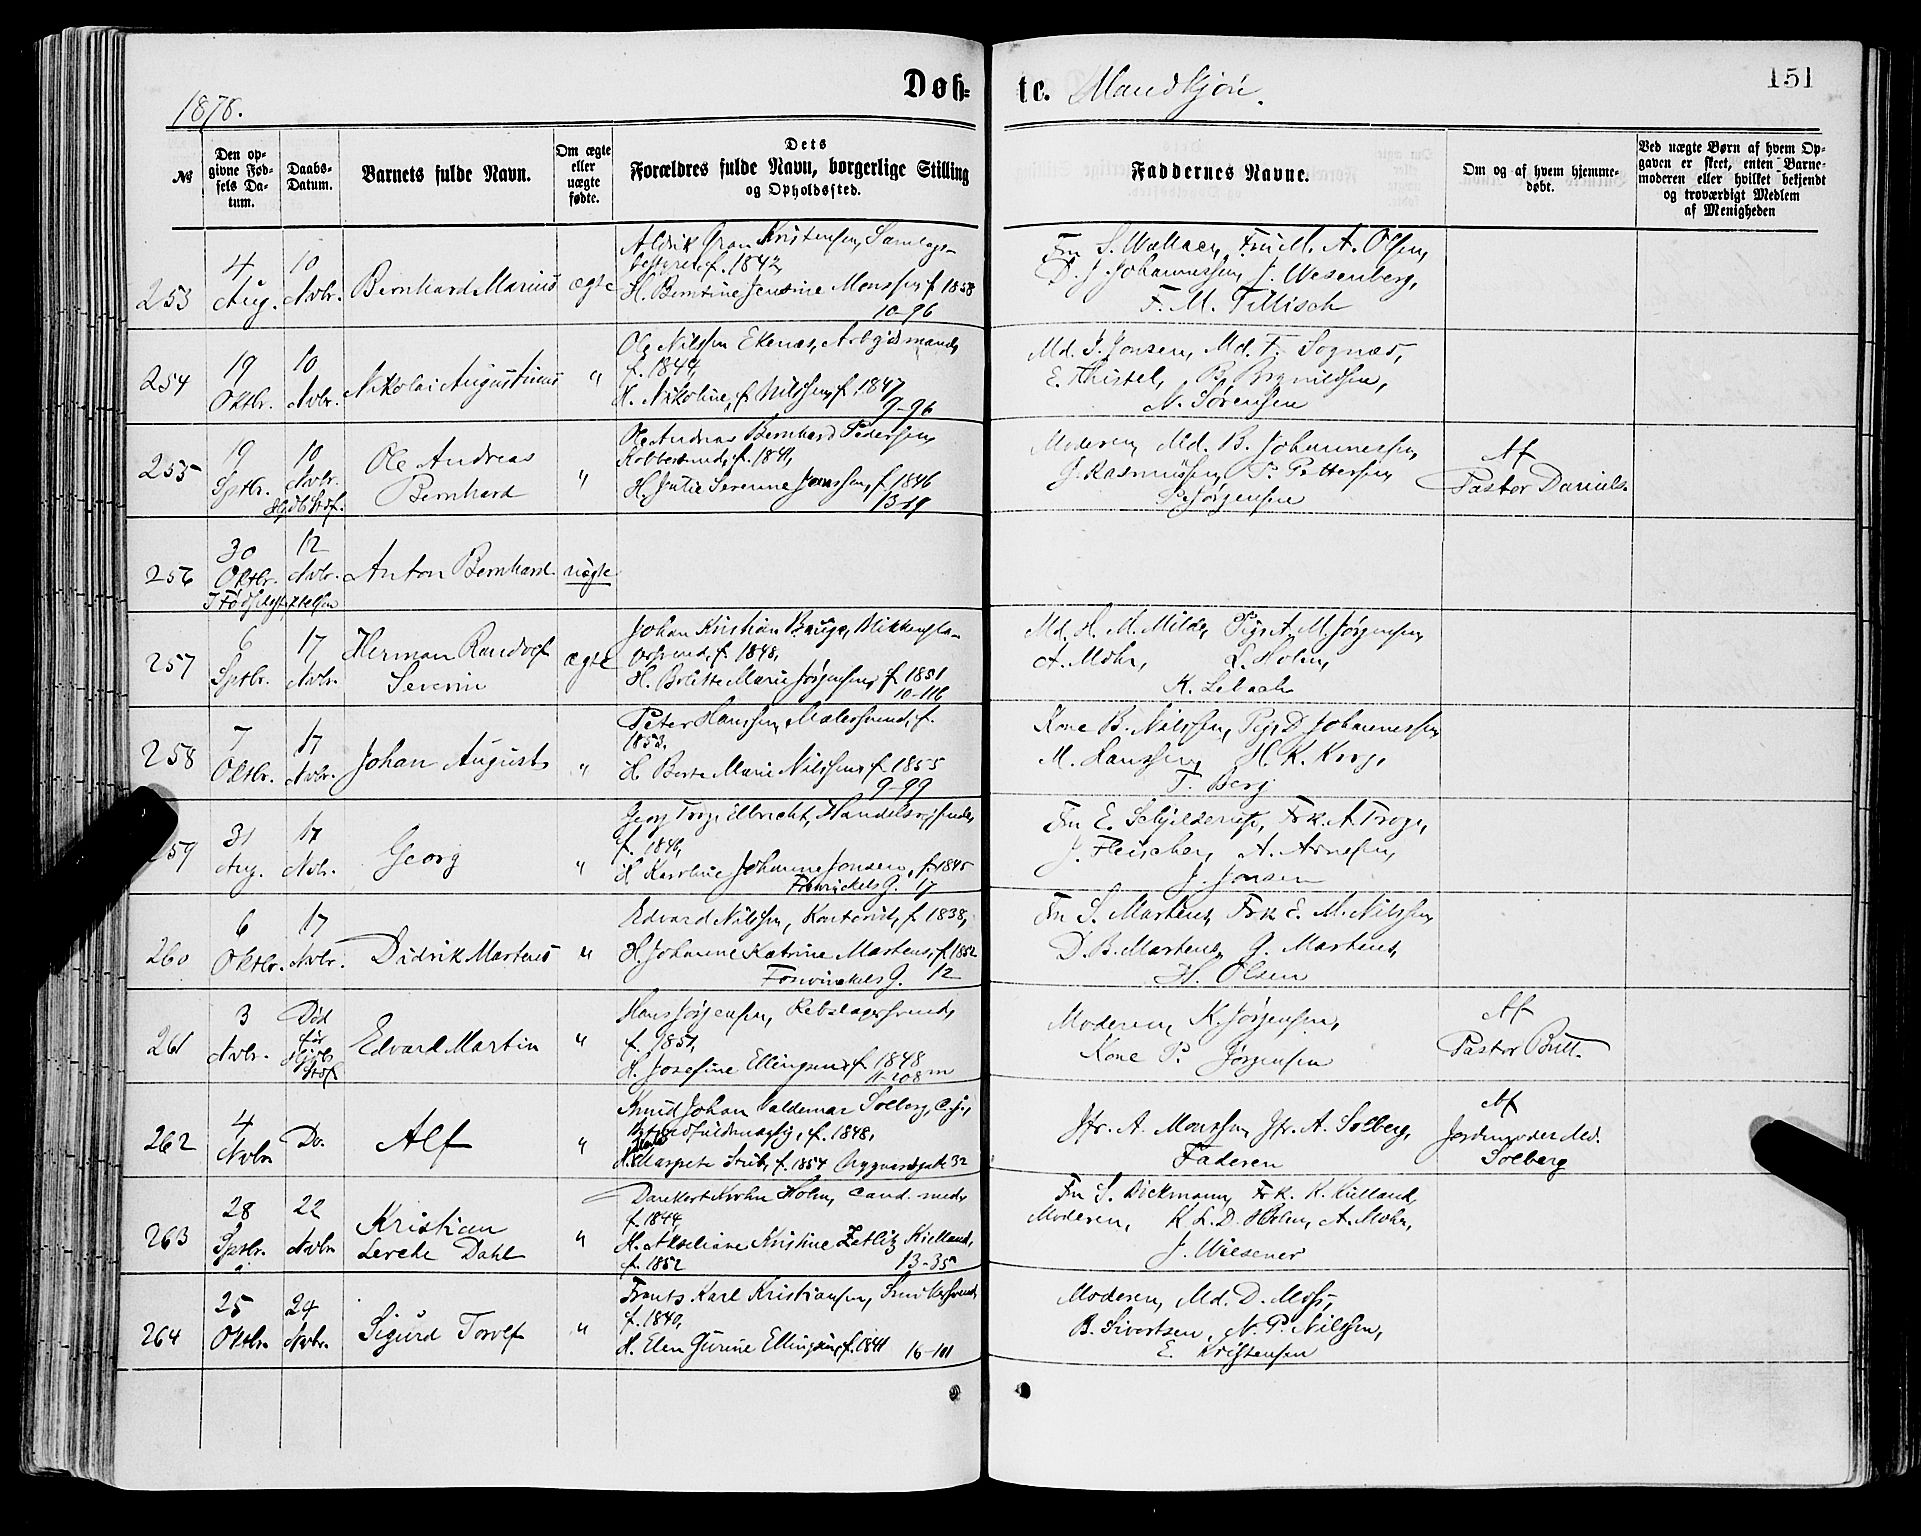 1878.
Døb-
te. Mandkjøn.
151
№
Den op-
givne Fød-
sels Da-
tum.
Daabs-
Datum.
Barnets fulde Navn.
Om ægte
eller
uægte
fødte.
Dets
Forældres fulde Navn, borgerlige Stilling
og Opholdssted.
Faddernes Navne.
Om og af hvem hjemme-
døbt.
Ved uægte Børn af hvem Op-
gaven er skeet, enten Barne-
moderen eller hvilket bekjendt
og troværdigt Medlem
af Menigheden
253
4
Aug.
10
Nvbr.
Bernhard Marius
ægte
Kristensen, Samlags-
bestyrer, f. 1842,
H. Berntine Jensine Monssen, f. 1858
10-96
Fru S. Wallace, Fru M. A. Olsen,
D. J. Johannessen, J. Wesenberg,
F. M. Tillisch
254
19
Oktbr.
10
Nvbr.
Nikolai Augustinus
"
Ole Nilssen Ekenæs, Arbejdsmand,
f. 1844,
H. Nikoline, f. Nilssen, f. 1847
9-96
Md. J. Jonsen, Md. F. Sognæs,
E. Thistel, B. Brynildsen,
N. Sørensen
255
9
Sptbr.
10
Nvbr.
Hjdb. Stdf.
Ole Andreas
Bernhard
"
Ole Andreas Bernhard Pedersen,
f. 1841,
H. Julie Severine Jonassen, f. 1846
13-19
Moderen, Md. B. Johannessen,
J. Rasmussen, P. Pettersen,
P. Jørgensen
Af
Pastor Daniels.
256
30
Oktbr.
I Fødselsstiftelsen
12
Nvbr.
Anton Bernhard
uægte
257
6
Sptbr.
17
Nvbr.
Herman Randolf
Severin
ægte
Johan Kristian Bauge, Blikkensla-
gersvend, f. 1848,
H. Bolette Marie Jørgensen, f. 1851
10-116
Md. H. M. Milde, Pige A. M. Jørgensen,
A. Mohr, L. Holm,
K. Lebach
258
7
Oktbr.
17
Nvbr.
Johan August
"
Peter Hanssen, Malersvend, f.
1853,
H. Berte Marie Nilssen, f. 1855
9-99
Kone B. Nilssen, Pige D. Johannessen,
M. Hanssen, H. K. Krog,
T. Berg
259
31
Aug.
17
Nvbr.
Georg
"
Georg Troye Ulbricht, Handelsrejsende,
f. 1846,
H. Karoline Johanne Jonsen, f. 1845
G. 17
Fru E. Schjelderup, Frk. A. Troye,
J. Fleischer, A. Arnesen,
J. Jonsen
260
6
Oktbr.
17
Nvbr.
Didrik Martens
"
Edvard Nilssen, Kontorist, f. 1838,
H. Johanne Katrine Martens, f. 1852
Forvinckels G. 12
Fru S. Martens, Frk. E. M. Nilssen,
D. B. Martens, G. Martens,
H. Olsen
261
3
Nvbr.
Død
før
Hjdb.
Stdf.
Edvard Martin
"
Hans Jørgensen, Rebslagersvend,
f. 1851,
H. Josefine Ellingsen, f. 1848
11-208 m
Moderen, K. Jørgensen,
Kone P. Jørgensen
Af
Pastor Bull.
262
4
Nvbr.
Do.
Alf
"
Knud Johan Valdemar Solberg, C. j.,
f. 1848,
H. Margrete Stub, f. 1854 Nygaardsgate 32
Jfr. A. Monssen, Jfr. A. Solberg,
Faderen
Af
Jordemoder Md.
Solberg
263
28
Sptbr.
22
Nvbr.
Kristian
Lerche Dahl
"
Danckert Krohn Holm, cand. med.
f. 1844,
H. Akseliane Kristine Zetlitz Kielland,
f. 1852 13-35
Fru S. Dickmann, Frk. K. Kielland,
Moderen, K. L. D. Holm, A. Mohr,
J. Wiesener
264
25
Oktbr.
24
Nvbr.
Sigurd Torolf
"
Frants Karl Kristiansen, Snedkersvend,
f. 1840,
H. Elen Gurine Ellingsen, f. 1841 16-101
Moderen, Md. D. Moss,
B. Sivertsen, N. P. Nilssen,
E. Kristensen